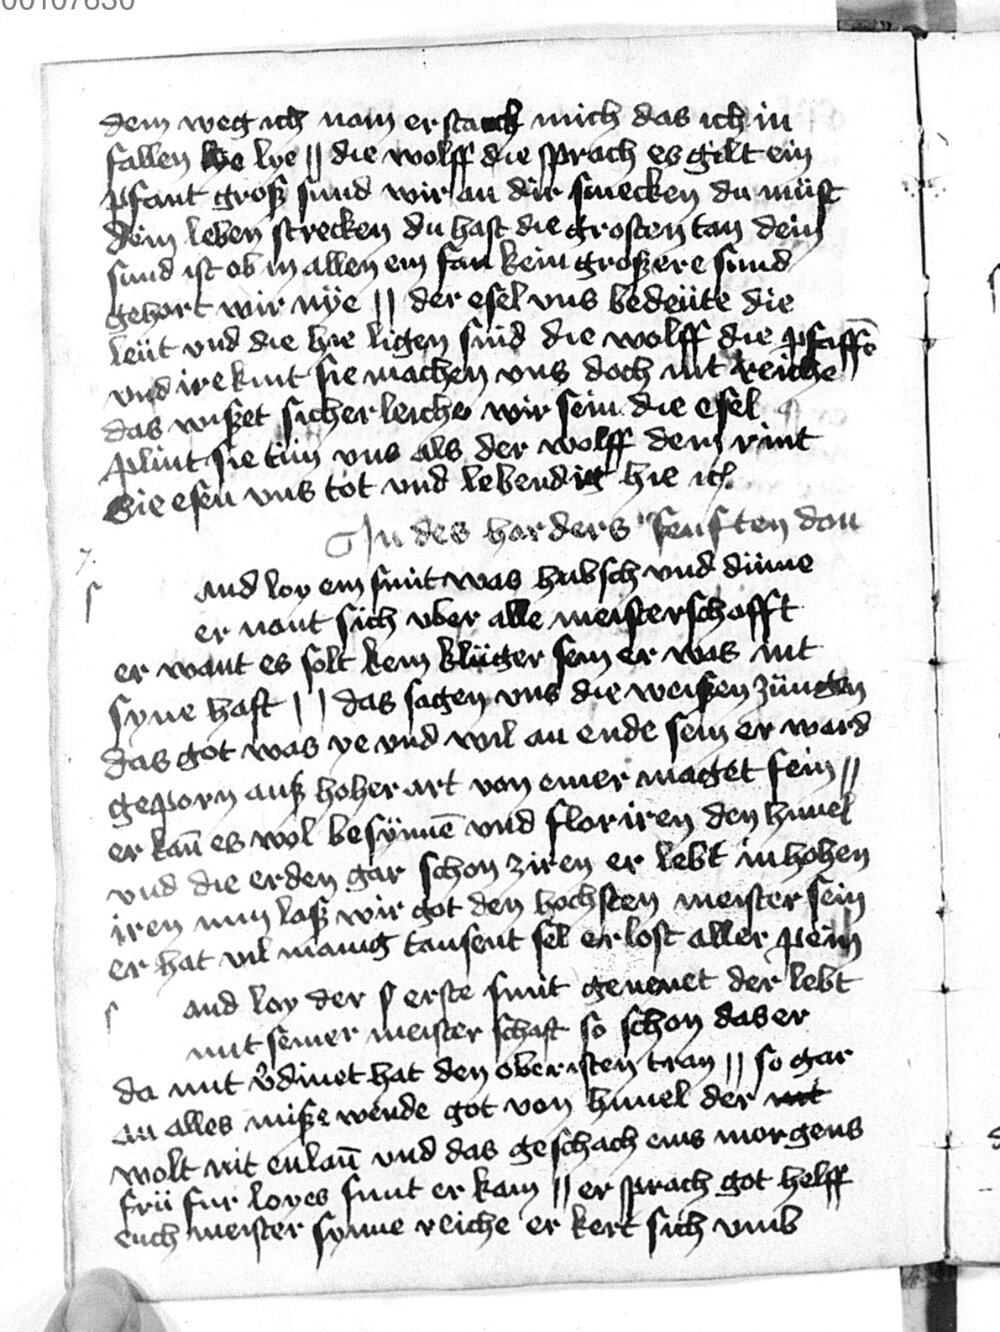 00107630
dem weg ich nam er stanck mich das ich in
fallen lye || die wolff die sprach es gilt ein
pfant groß sund wir an dir smecken du müst
dein leben strecken du hast die grosten tan dein
sund ist ob in allen ein fan kein großere sund
gehort wir nÿe || der esel vns bedeüte die
leüt vnd die hie ligen sind die wolff die pfaffē
vnd ire kint sie machen vns doch nit reiche ||
das wißet sicherleiche wir sein die esel
plint sie tün vns als der wolff dem rint
Sie esen vns tot vnd lebendig hie ich
In des harders senften don
7.
s and loy ein smit was hubsch vnd dünne
er nant sich vber alle meisterschafft
er want es solt kein klüger sein er was nit
syne haft || das sagen vns die weißen züngen
das got was ye vnd wil an ende sein er ward
geporn auß hoher art von einer maget fein ||
er kan̄ es wol besÿnnē vnd floriren den himel
vnd die erden gar schon ziren er lebt in hohen
iren nun laß wir got den hochsten meister sein
er hat vil manig tausent sel erlost aller pein ||
s and loy der s erste smit genenet der lebt
mit seiner meisterschaft so schon das er
da mit v̄dinet hat den obersten tran || so gar
an alles miße wende got von himel der nit
wolt nit enlan̄ vnd das geschach eins morgens
frü fur loyes smit er kam || er sprach got helff
euch meister synne reiche er kert sich vmb